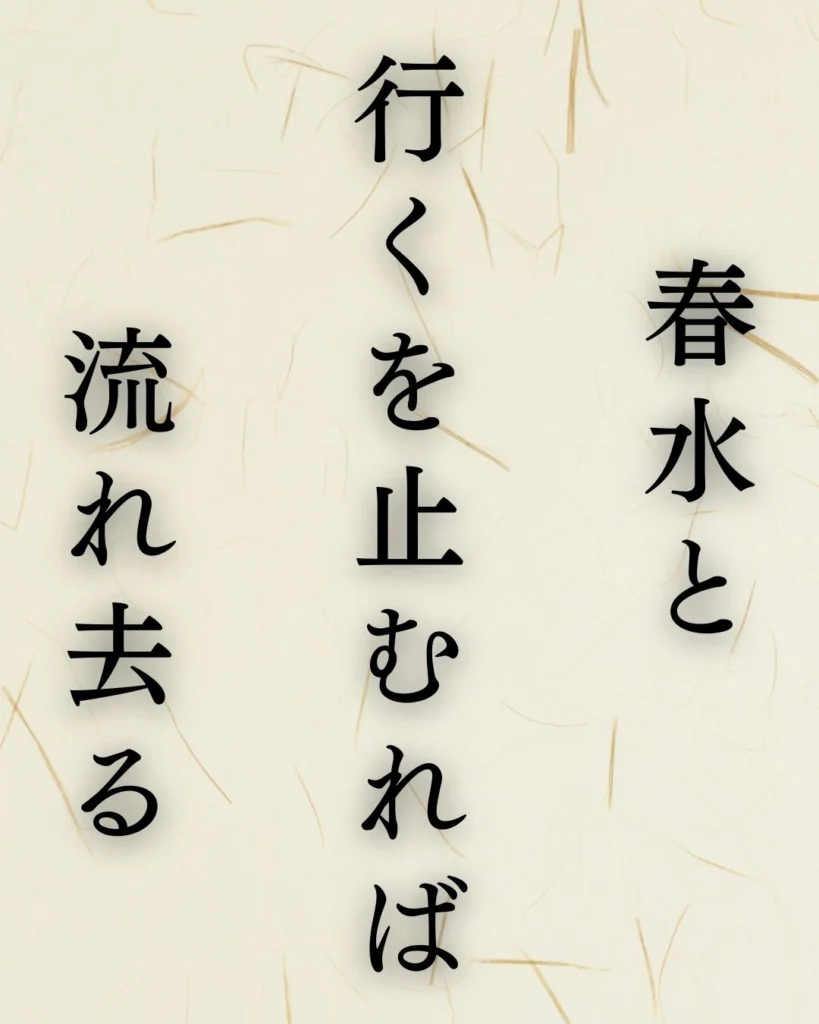 春水と
行くを止むれば
流れ去る